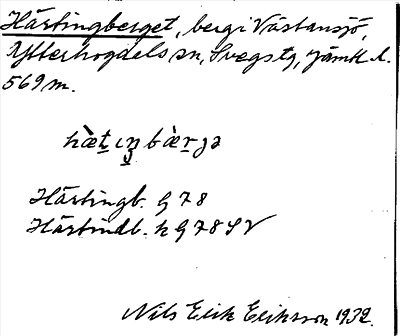 Härtingberget, berg i Västansjö,
Ytterhogdals sn, Svegs tg, Jämtl. l.
569 m.
hæ̀t̠ıŋbàrgə
Härtingb. G 78
Härtindb. h G 78 SV
Nils Erik Eriksson 1932